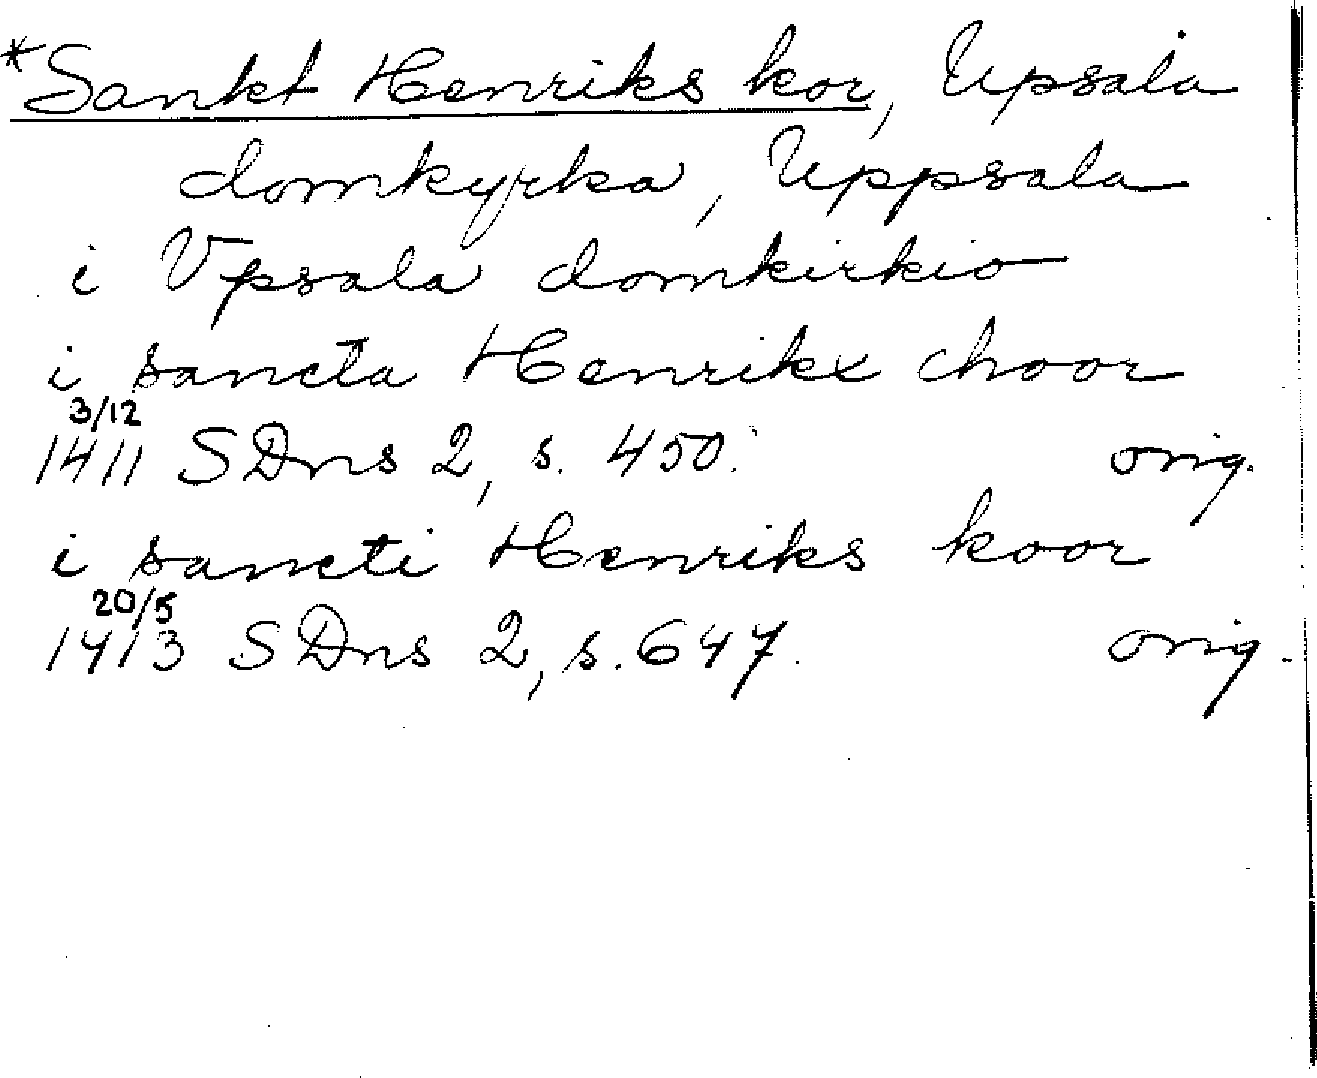 *Sankt Henriks kor, Upsala
domkyrka, Uppsala
i Vpsala domkirkio
i sancta Henrikx choor
3/12
1411 SDns 2, s. 450. orig.
i sancti Henriks koor
20/5
1413 SDns 2, s. 647. orig.